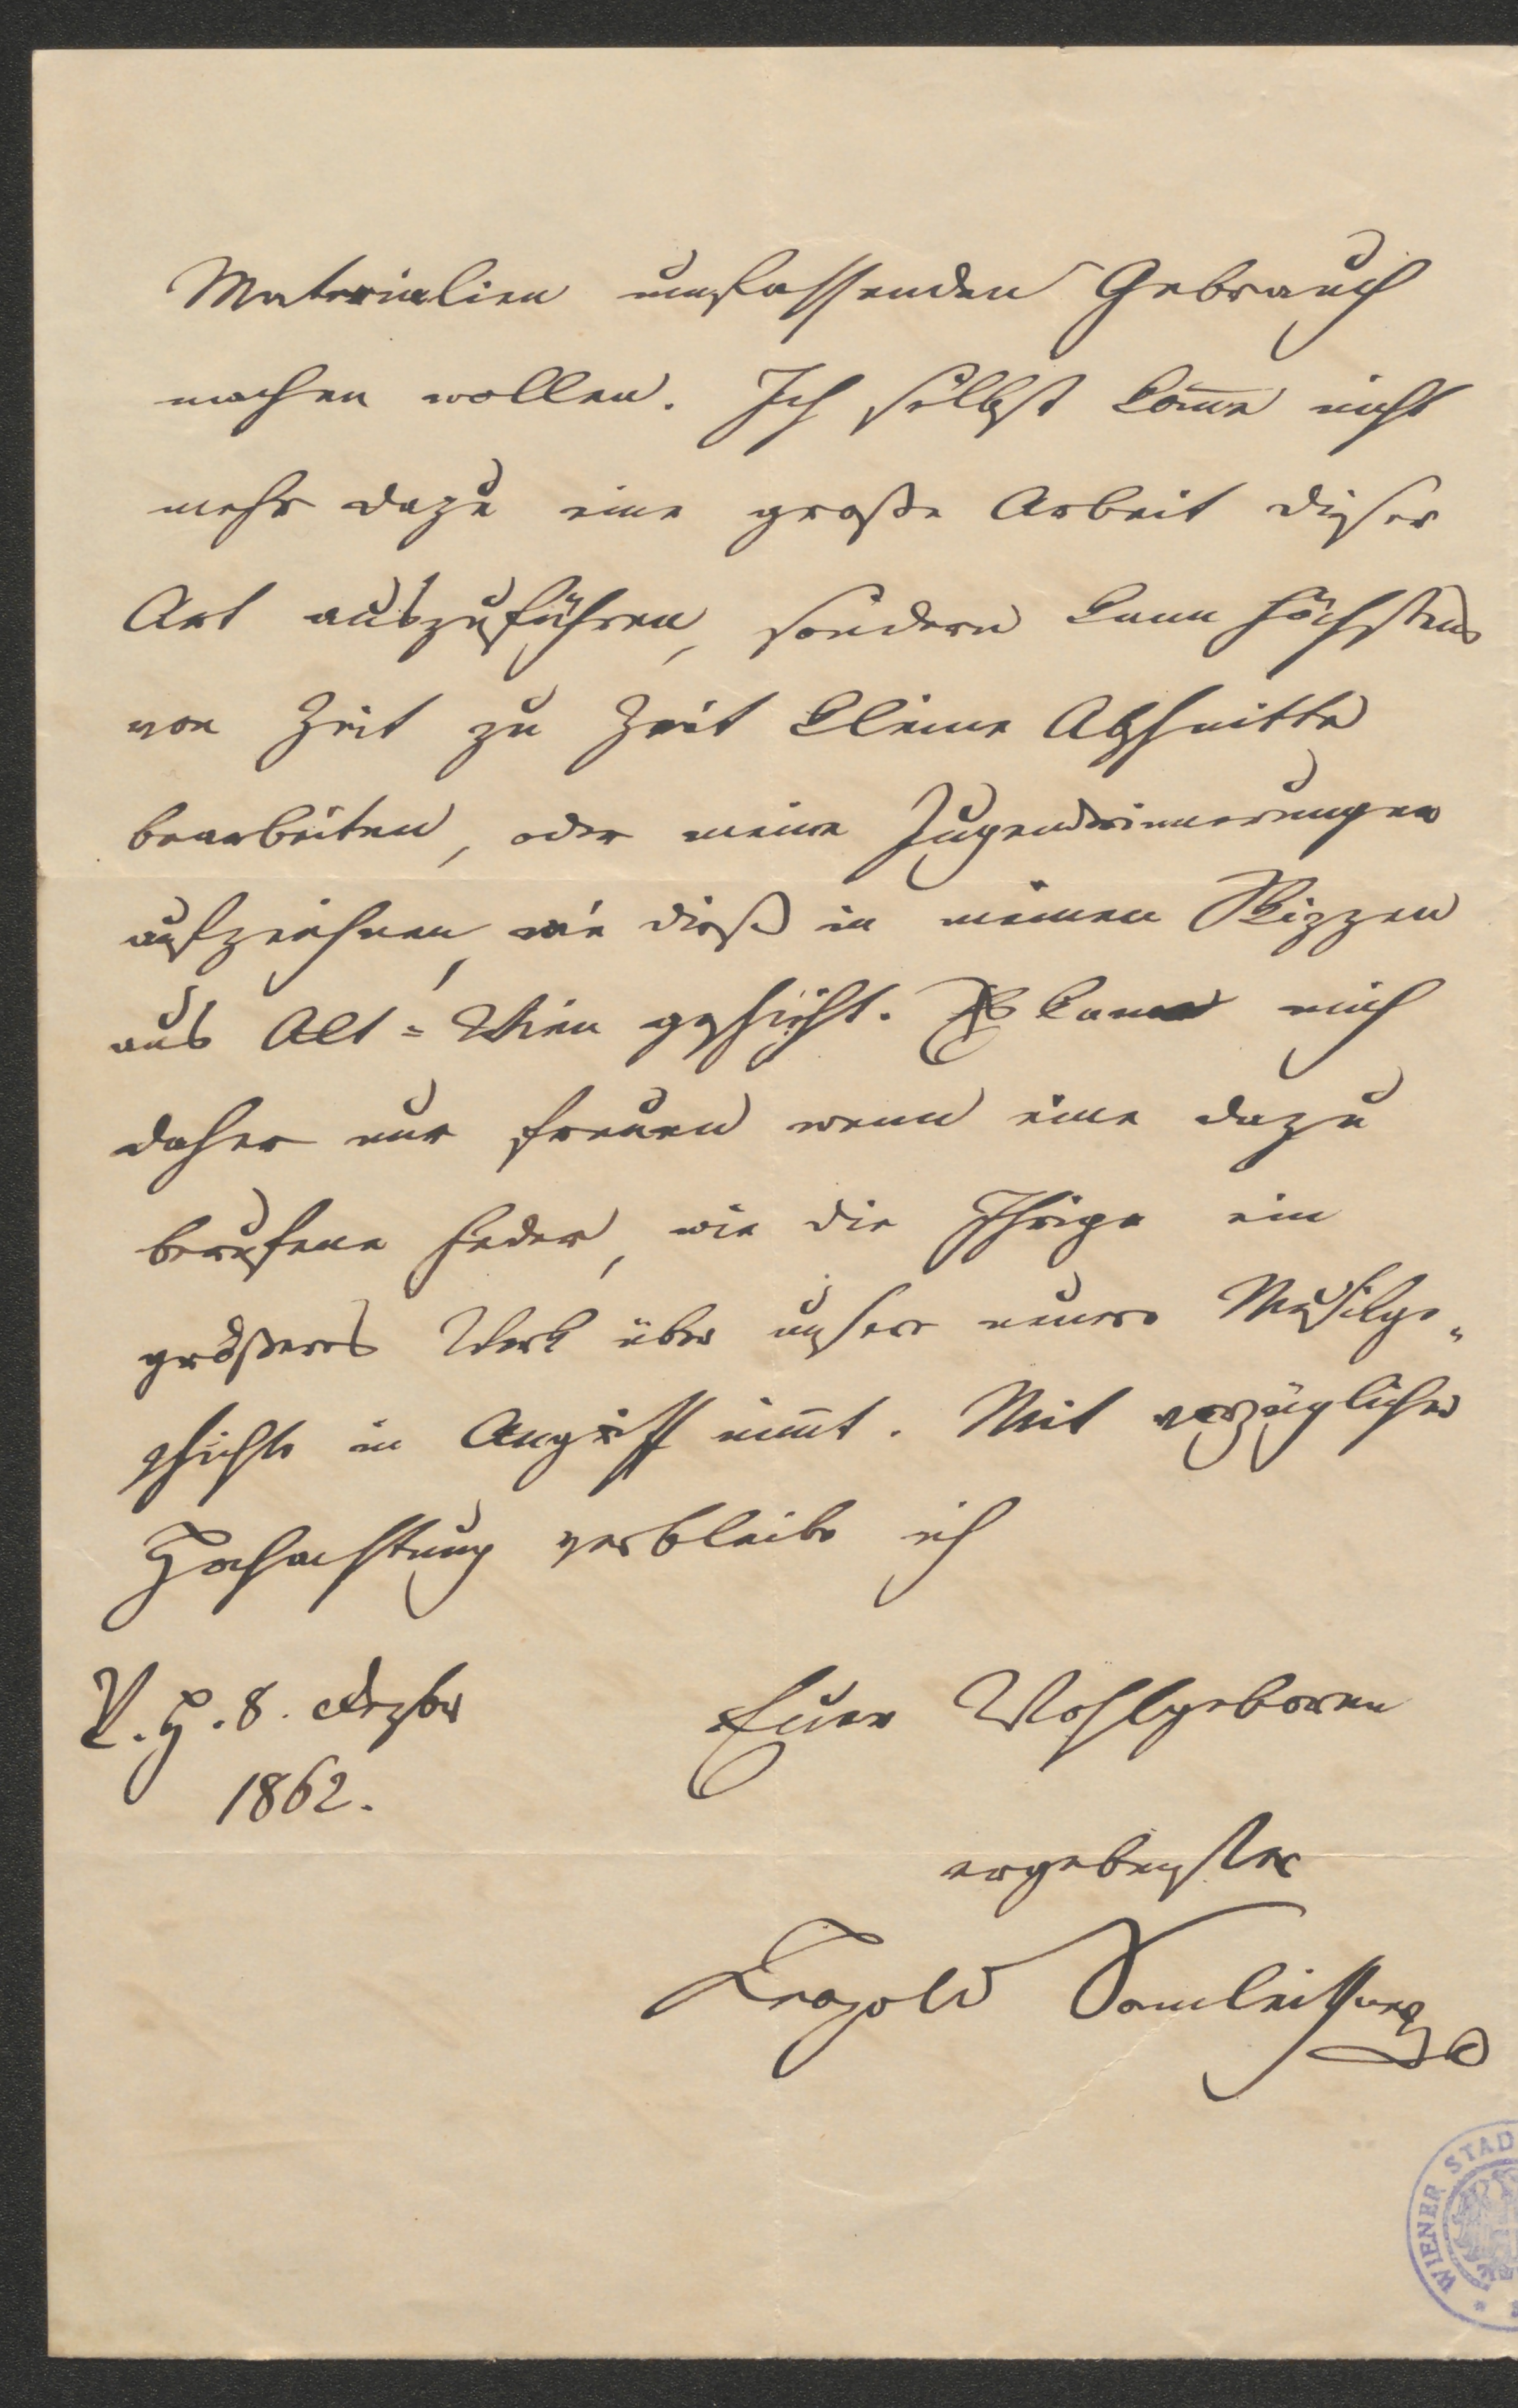 Materialien umfassenden Gebrauch
machen wollen. Ich selbst kom̄e nicht
mehr dazu eine große Arbeit dieser
Art auszuführen, sondern kann höchstens
von Zeit zu Zeit kleine Abschnitte
bearbeiten, oder meine Jugenderinnerungen
aufzeichnen, wie dieß in meinen Skizzen
aus Alt=Wien geschieht. Es kann mich
daher nur freuen wenn eine dazu
berufene Feder, wie die Ihrige ein
größeres Werk über unsere neuere Musikge„
schichte in Angriff nim̄t. Mit vorzüglicher
Hochachtung verbleibe ich
V. H. 8. Dezber
1862.
Euer Wohlgeboren
ergebenster
Leopold Sonnleithner
WIENER STAD